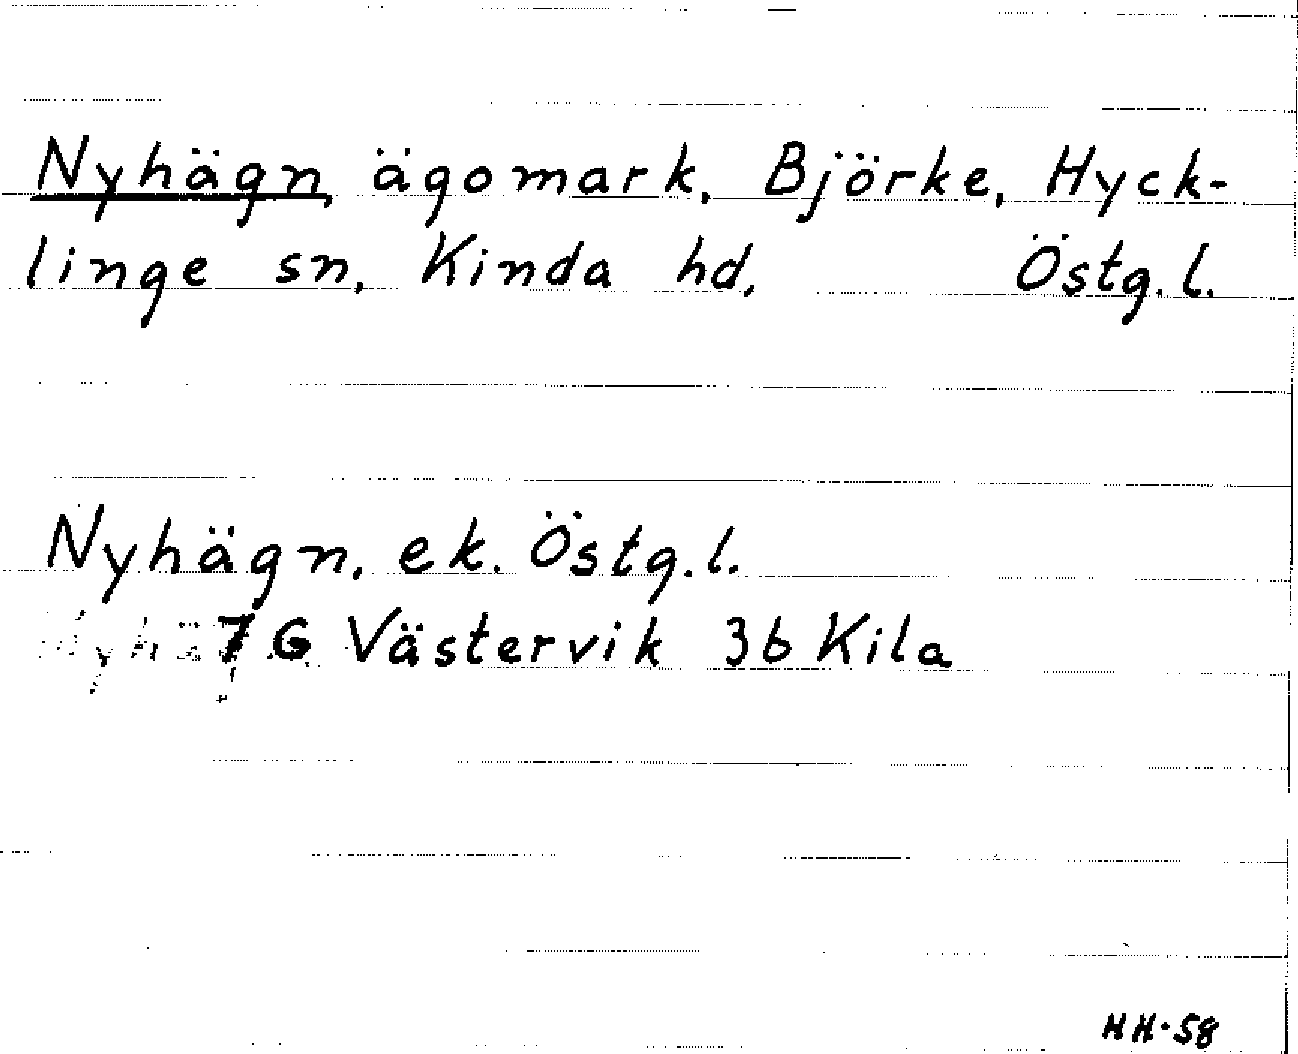 Nyhägn, ägomark, Björke, Hyck-
linge sn, Kinda hd, Östg. l.
Nyhägn, ek. Östg. l.
7 G Västervik 3b Kila
HH-58